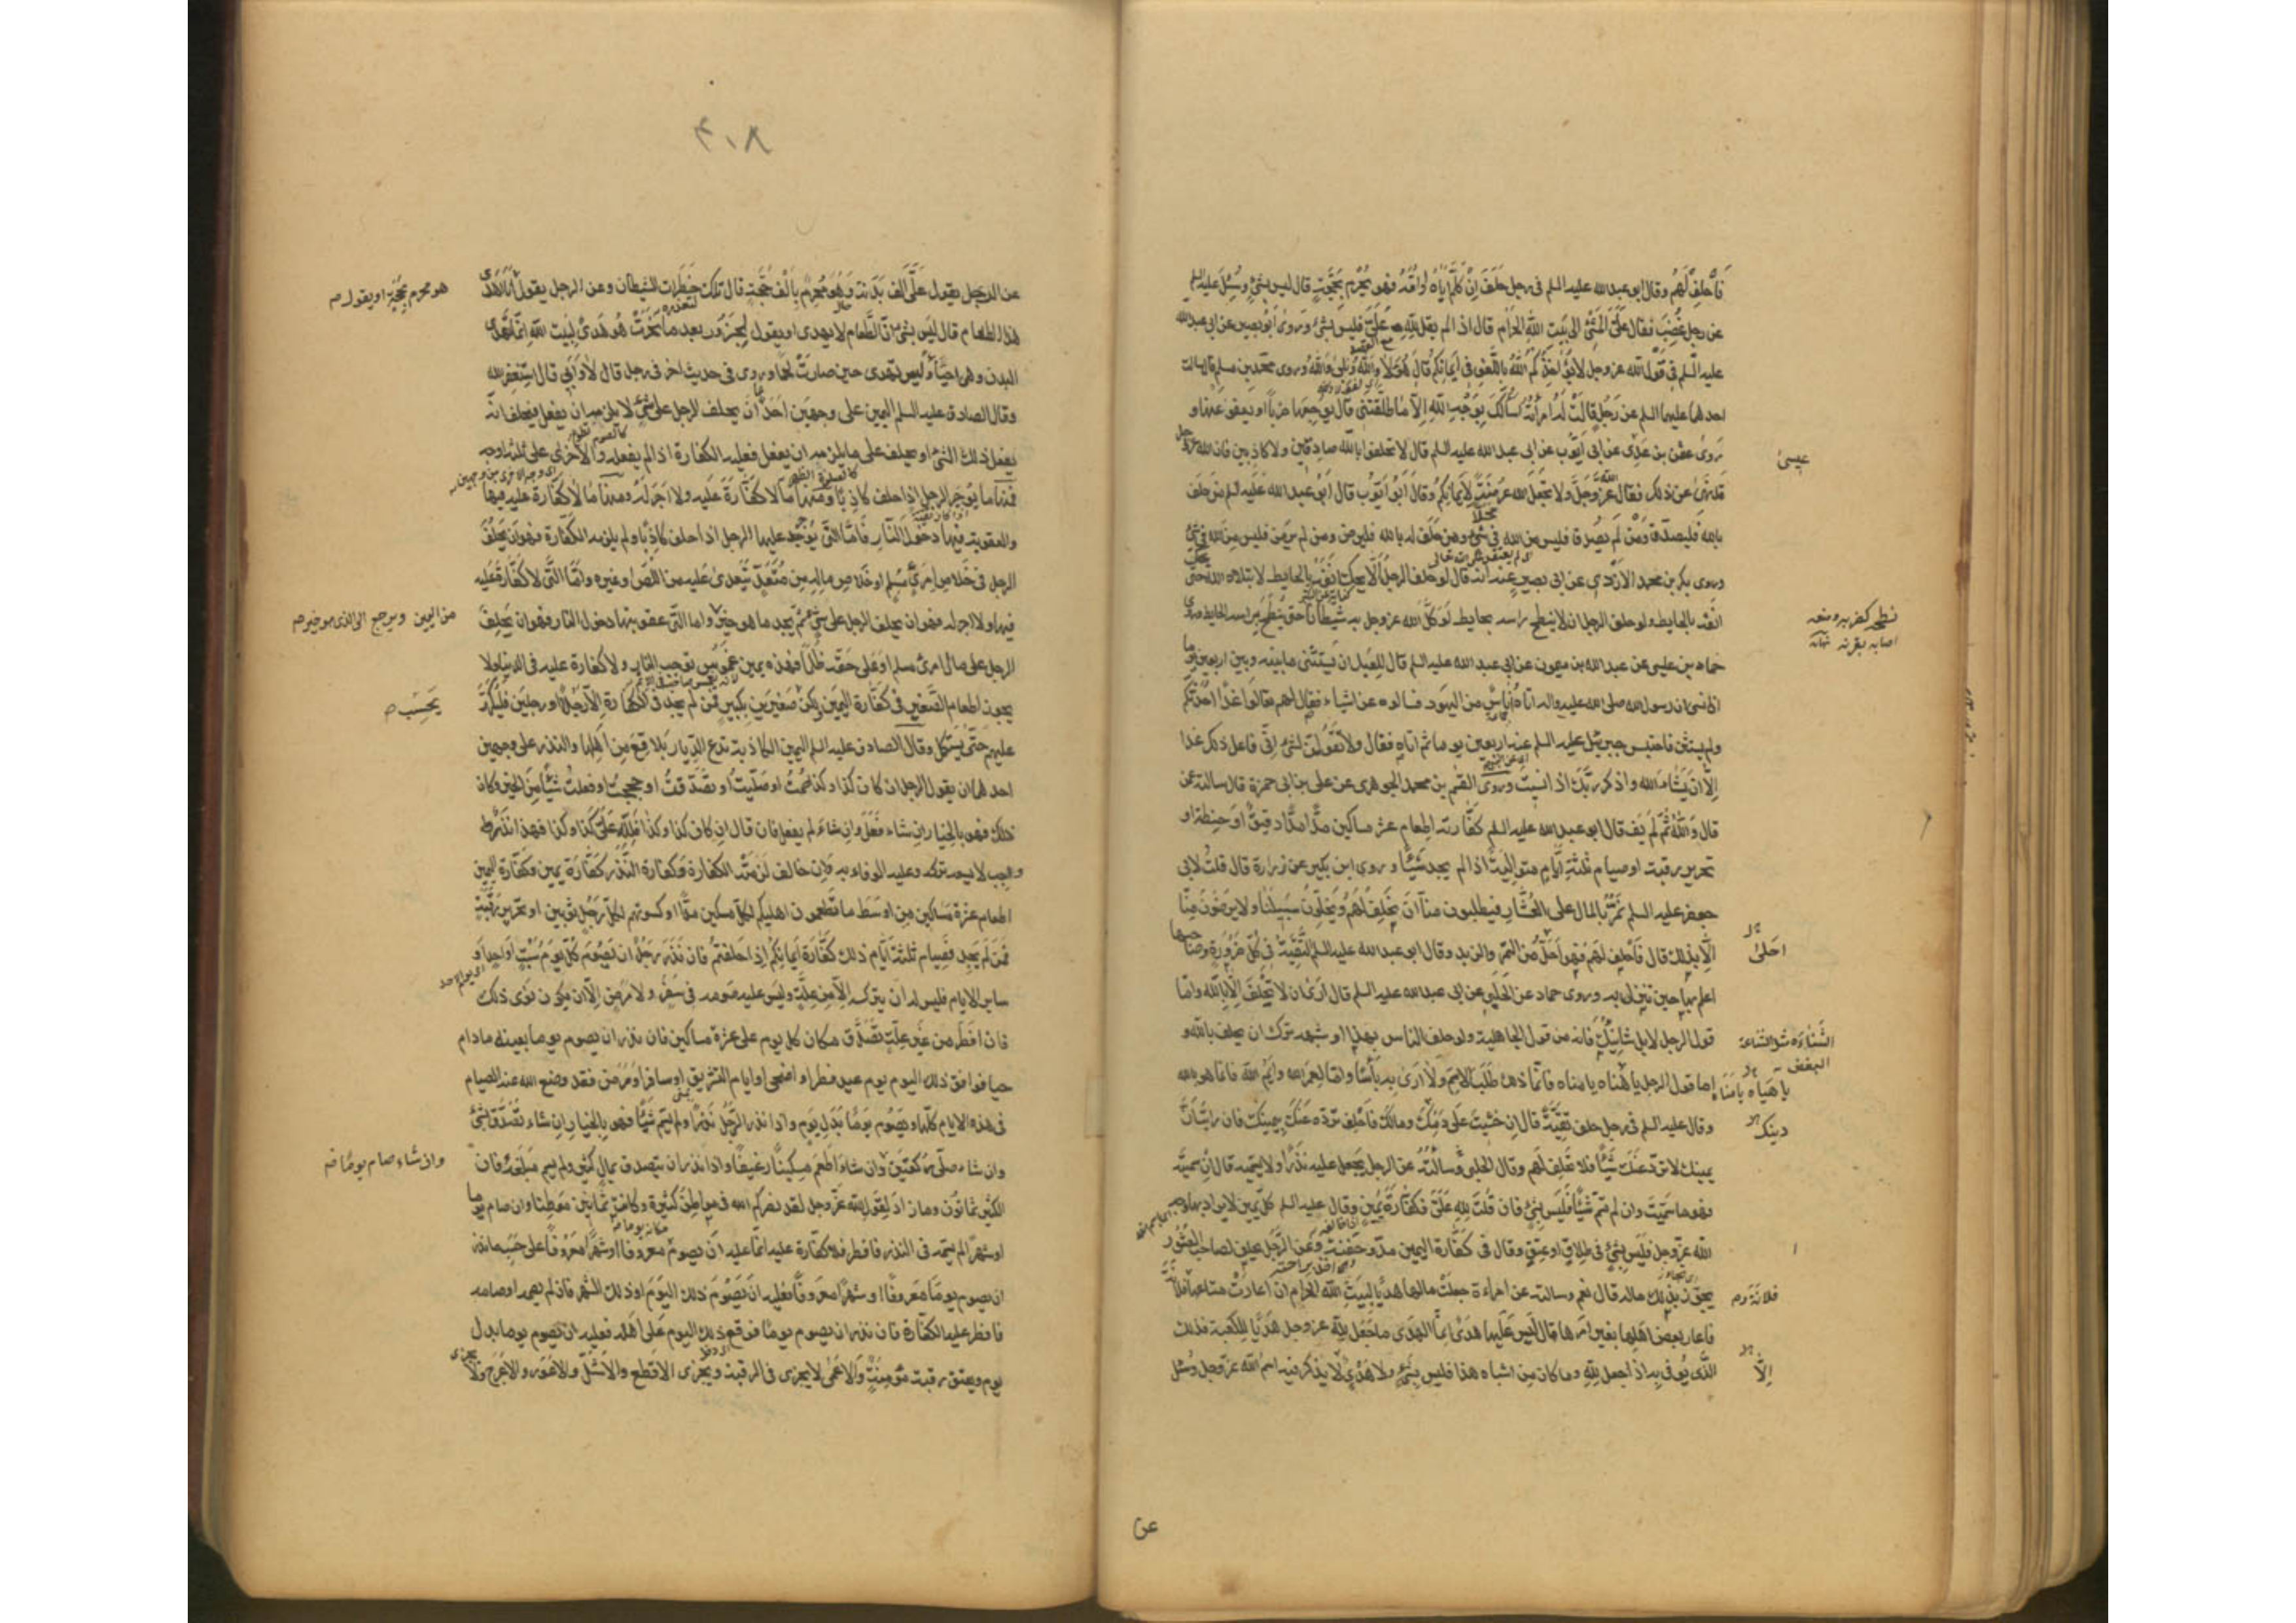 فَاحْلِفْ لَهُمْ وقال ابو عبد الله عليه السلم فى رجل حَلَفَ اِنْ كَلَّمَ اَباهُ اَواُمَّهُ فهو يُحْرِم بِحَجَّةٍ قال ليس بشئٍ وسُئِلَ عليه السلم
عن رجل غَضِبَ فقال عَلَىَّ الْمَشْىُ الى بَيتِ اللهِ الحرام قال اذا لم يقل لِلّٰهِ عَلَىَّ فليس بشئ وروى اَبُو بَصير عن ابى عبد الله
عليه السلم فى قَوْل الله عز وجل لا يُؤاخِذُكُمُ اللهُ بِاللَّغْوِ فى اَيمانِكُم قال هُوَ لا وَاللهِ وَبَلى وَاللهِ وروى محمد بن مسلم قال سالت
احدهما عليهما السلم عن رَجُلٍ قالَتْ لَهُ امراَتُهُ اَسْاَلُكَ بِوَجْهِ اللهِ اِلاّ ما طَلَّقْتَنى قال يُوجِعُها ضربًا او يَعفو عنها و
روى عثمن بن عيسى عن ابى اَيّوب عن ابى عبد الله عليه السلم قال لا تحلفوا بالله صادقين ولا كاذبين فان الله عز وجل
قد نهى عن ذلك فقال عَزَّوَجَلَّ ولا تجعلوا الله عُرضَةً لِاَيمانِكُم وقال اَبُو اَيّوب قال ابو عبد الله عليه السلم من حلف
بالله فَليصدُق ومَنْ لَم يَصدُق فليس من الله فى شئ ومن حُلِفَ له بالله فليرض ومن لم يرض فليس من الله فى شئ
وروى بكر بن محمد الازدى عن ابى بصير عنه انه قال لو حلف الرجلُ اَلاّ يحك اَنْفَهُ بالحايط لابتلاه الله حتى يحك
اَنفه بالحايط ولو حلف الرجل ان لا ينطح راسه بحايط لَوَكَّلَ الله عز وجل به شيطانًا حتى ينطح براسه الحايط وروى
حماد بن عيسى عن عبد الله بن ميمون عن ابى عبد الله عليه السلم قال للعبد ان يَستَثنى ما بينه وبين اربعين يوما
اذا نسى ان رسول الله صلى الله عليه واله اتاه اُناسٌ من اليهود فسالوه عن اشياء فقال لهم تعالوا غدًا اُحَدِّثكم
ولم يستثن فاحتبس جبرئيل عليه السلم عنه اربعين يوما ثم اتاه فقال ولا تَقُولَنَّ لشئٍ اِنّى فاعل ذلك غدا
اِلاّ اَنْ يَشاءَ الله واذكر ربَّك اذا نسيتَ وروى القسم بن محمد الجوهرى عن على بن ابى حمزة قال سالته عن
قال وَاللهِ ثُمَّ لَم يَفِ قال ابو عبد الله عليه السلم كفّارته اطعام عشر مساكين مُدًّا مُدًّا دقيقٌ اَو حِنطَة او
تحرير رقبة او صيام ثلثة اَيّامٍ متوالِيَةً اذا لم يجد شَيئًا وروى ابن بكير عن زرارة قال قلت لابى
جعفر عليه السلم نَمُرُّ بالمال على العُشّار فيطلبون منا اَنْ نَحلِفَ لَهُم ويُخَلّونَ سَبيلَنا ولا يرضون منّا
اِلاّ بذلك قال فَاحلِف لَهُم فهو اَحَلُّ من التمر والزبد وقال ابو عبد الله عليه السلم اَلتَّقيّةُ فى كُلِّ ضرورة وصاحبها
اعلم بها حين تنزل به وروى حماد عن الحَلَبى عن ابى عبد الله عليه السلم قال اَرى ان لا تُحْلِفَ اِلاّ بِالله وامّا
قول الرجل لابل شانِئِكَ فانه من قول الجاهلية ولو حلف الناس بهذا او شبهه ترك ان يحلف بالله و
اما قول الرجل يا هَناه يا مناه فانّما ذلك طَلَبُ الاِسم ولا اَرى به بأسًا وامّا لَعَمرُ الله وايمُ الله فانما هو بالله
وقال عليه السلم فى رجل حلف تقيَّةً قال اِن خشيتَ على دَمِكَ ومالك فَاحلِف تردّه عَنكَ بيمينك فان رايتَ اَنَّ
يمينك لا تردّ عَنكَ شَيئًا فلا تَحلِف لهم وقال الحلبى وسالتُهُ عن الرجل يجعل عليه نَذرًا ولا يُسميه قال اِنْ سَمَّيتَه
فهو ما سَمَّيتَ وان لم تُسَمِّ شَيئًا فَليسَ بشئٍ فان قُلتَ لِله عَلَىَّ فكفّارةُ يَمينٍ وقال عليه السلم كلّ يَمين لا يراد بها وجه
الله عز وجل فليس بشئٍ فى طلاقٍ او عِتقٍ وقال فى كَفّارة اليمين مد وحَفنَةٌ وعن الرَّجُل يحلف لصاحب العُشور
يحوز بذلك ماله قال نعم وسالته عن امراءة جعلت مالها هديًا لِبيتِ الله الحرام ان اعارت متاعها فلانة
فاعار بعض اهلها بغير امرها قال ليسَ عَليها هَدىٌ اِنّما الهَدى ما جُعِلَ لِلّه عز وجل هَديًا للكعبة فذلك
الَّذى يُوفى به اذا جُعِل لِلّهِ وما كان مِن اشباه هذا فليس بشئٍ ولا هَدىَ لا يذكر فيه اسم الله عز وجل وسُئل
عيسى
نطحه كمنعه وضربه
اصابه بقرنه
احلى
الشناءة
البغض
يا هياه يا هناه
دينك
فلانة
اِلاّ
عن
٣٠٨
عن الرجل يقول عَلَىَّ اَلف بَدَنةٍ وَهُوَ مُحرِمٌ بِاَلْف حَجّةٍ قال تلك خُطُوات الشيطان وعن الرجل يقول اَنَا اُهْدى
هذا الطعام قال ليس بشئٍ اِنّ الطعام لا يهدى او يقول لجَزُورٍ بعد ما نُحِرَتْ هُوَ هَدىٌ لِبيت الله اِنّما تُهدَى
البدن وهى احياءٌ وليس تهدى حين صارت لحمًا وروى فى حديث اخر فى رجل قال لا وَاَبى قال استغفر الله
وقال الصادق عليه السلم اليمين على وجهين احدهما اَنْ يحلف الرجل على شئٍ لا يلزمه ان يفعل فيحلف انّه
يفعل ذلك الشئ او يحلف على ما يلزمه ان يفعل فعليه الكفّارة اذا لم يفعله والاُخرى على ثلثة اوجه
فمنها ما يُوجَر الرجل اذا حلف كاذبًا ومنها ما لا كفّارةَ عليه ولا اجر له ومنها ما لا كفّارة عليه فيها
والعقوبة فيها دخول النّار فَامّا التى يُوجَر عليها الرجل اذا حلف كاذبًا ولم يلزمه الكفّارة فهو ان يحلف
الرجل فى خلاص امرئٍ مُسلِم اَو خلاص ماله مِن مُتَعَدٍّ يتَعدّى عليه من لصّ اوغيره وامّا الّتى لا كفّارة عليه
فيها ولا اجر له فهو ان يحلف الرجل على شئٍ ثُمّ يجد ما هو خيرٌ واما التى عقوبتها دخول النار فهو ان يحلِف
الرجل على مال امرئ مسلم اَو عَلى حقه ظلمًا فهذه يمين غموسٌ توجب النار ولا كفارة عليه فى الدنيا ولا
يجوز اطعام الصَّغير فى كفّارة اليمين ولكن صَغيرَين بكبيرٍ فمن لم يجد فى الكفّارة اِلاّ رَجُلاً او رجلَين فَليُكَرِّر
عليهم حتّى يستكمل وقال الصادق عليه السلم اليمين الكاذبة تَدَع الدِّيار بَلاقِعَ مِن اَهلِها والنذر على وجهين
احدهما ان يقول الرجل ان كان كذا وكذا صُمتُ او صَلّيتُ اَو تَصَدَّقتُ او حججتُ او فعلتُ شَيئًا مِنَ الخَير فكان
ذلك فهو بالخيار اِن شاء فَعَلَ وان شاءَ لم يفعل فان قال اِن كان كذا وكذا فَلِلّهِ عَلَىَّ كَذا وكذا فهذا نذرٌ
واجب لا يسعه تركه وعليه الوفاء به وان خالف لَزِمَتْهُ الكفّارة وكفارة النَّذرِ كفّارةُ يمين وكفّارة اليمين
اطعام عشرة مساكين مِن اَوسط ما تُطعمون اهليكم لكلّ مسكين مُدّ او كسوتهم لكلّ رَجُلٍ ثوبين او تحرير رَقَبَةٍ
فَمن لم يَجِد فصيام ثلثةِ اَيّامٍ ذلك كفّارة اَيمانكُم اِذا حلفتُم فان نَذَرَ رَجُلٌ ان يَصُومَ كُلَّ يَوم سَبتٍ اَو احد اَو
ساير الايام فليس له ان يتركه اِلاّ مِن علّةٍ وليس عليه صومه فى سَفَرٍ ولا مرضٍ اِلاّ ان يكون نَوَى ذلك
فان افطر من غير عِلّةٍ تَصدَّق مكان كلّ يومٍ على عشرة مساكين فان نذر ان يصوم يوما بعينه ما دام
حيا فوافق ذلك اليوم يوم عيد فطر او اضحى او ايام التشريق او سافر او مرض فقد وضع الله عنه الصيام
فى هذه الايام كلّها ويَصُوم يومًا بدل يومٍ واذا نذر الرَّجُلُ نَذرًا ولم يسمّ شَيئًا فهو بالخيار اِن شاء تَصدّق بشئٍ
وان شاء صلّى ركعتين وان شاء اَطعمَ مسكينًا رغيفًا واذا نذر ان يتصدق بمال كثير ولم يسم مَبلَغَهُ فان
الكثير ثمانون وما زاد لِقَولِ الله عَزَّ وجل لقد نصركم الله فى مواطِنَ كثيرة وكانت ثمانين مَوطنًا وان صام يوما
اوشهرًا لم يسمّه فى النذر فافطر فلا كفّارة عليه انّما عليه اَن يصومَ معروفًا اوشهرًا معروفًا على حَسَب ما نذر
ان يصوم يومًا مَعروفًا او شهرًا معروفًا فعليه ان يَصُومَ ذلك اليومَ او ذلك الشهر فان لم يصمه او صامه
فافطر عليه الكفّارة فان نذر ان يصوم يومًا فوقع ذلك اليوم على اَهله فعليه ان يصوم يومًا بدل
يوم ويعتق رقبة مُؤمِنَةٍ والاَعمى لا يجزى فى الرقبة ويجزى الاقطع والاَشَلّ والاعور والاعرج ولا
هو محرم بحجة او يقول
من اليمين ويرجع الى الذى هو خير
يَحسِب
وان شاء صام يومًا